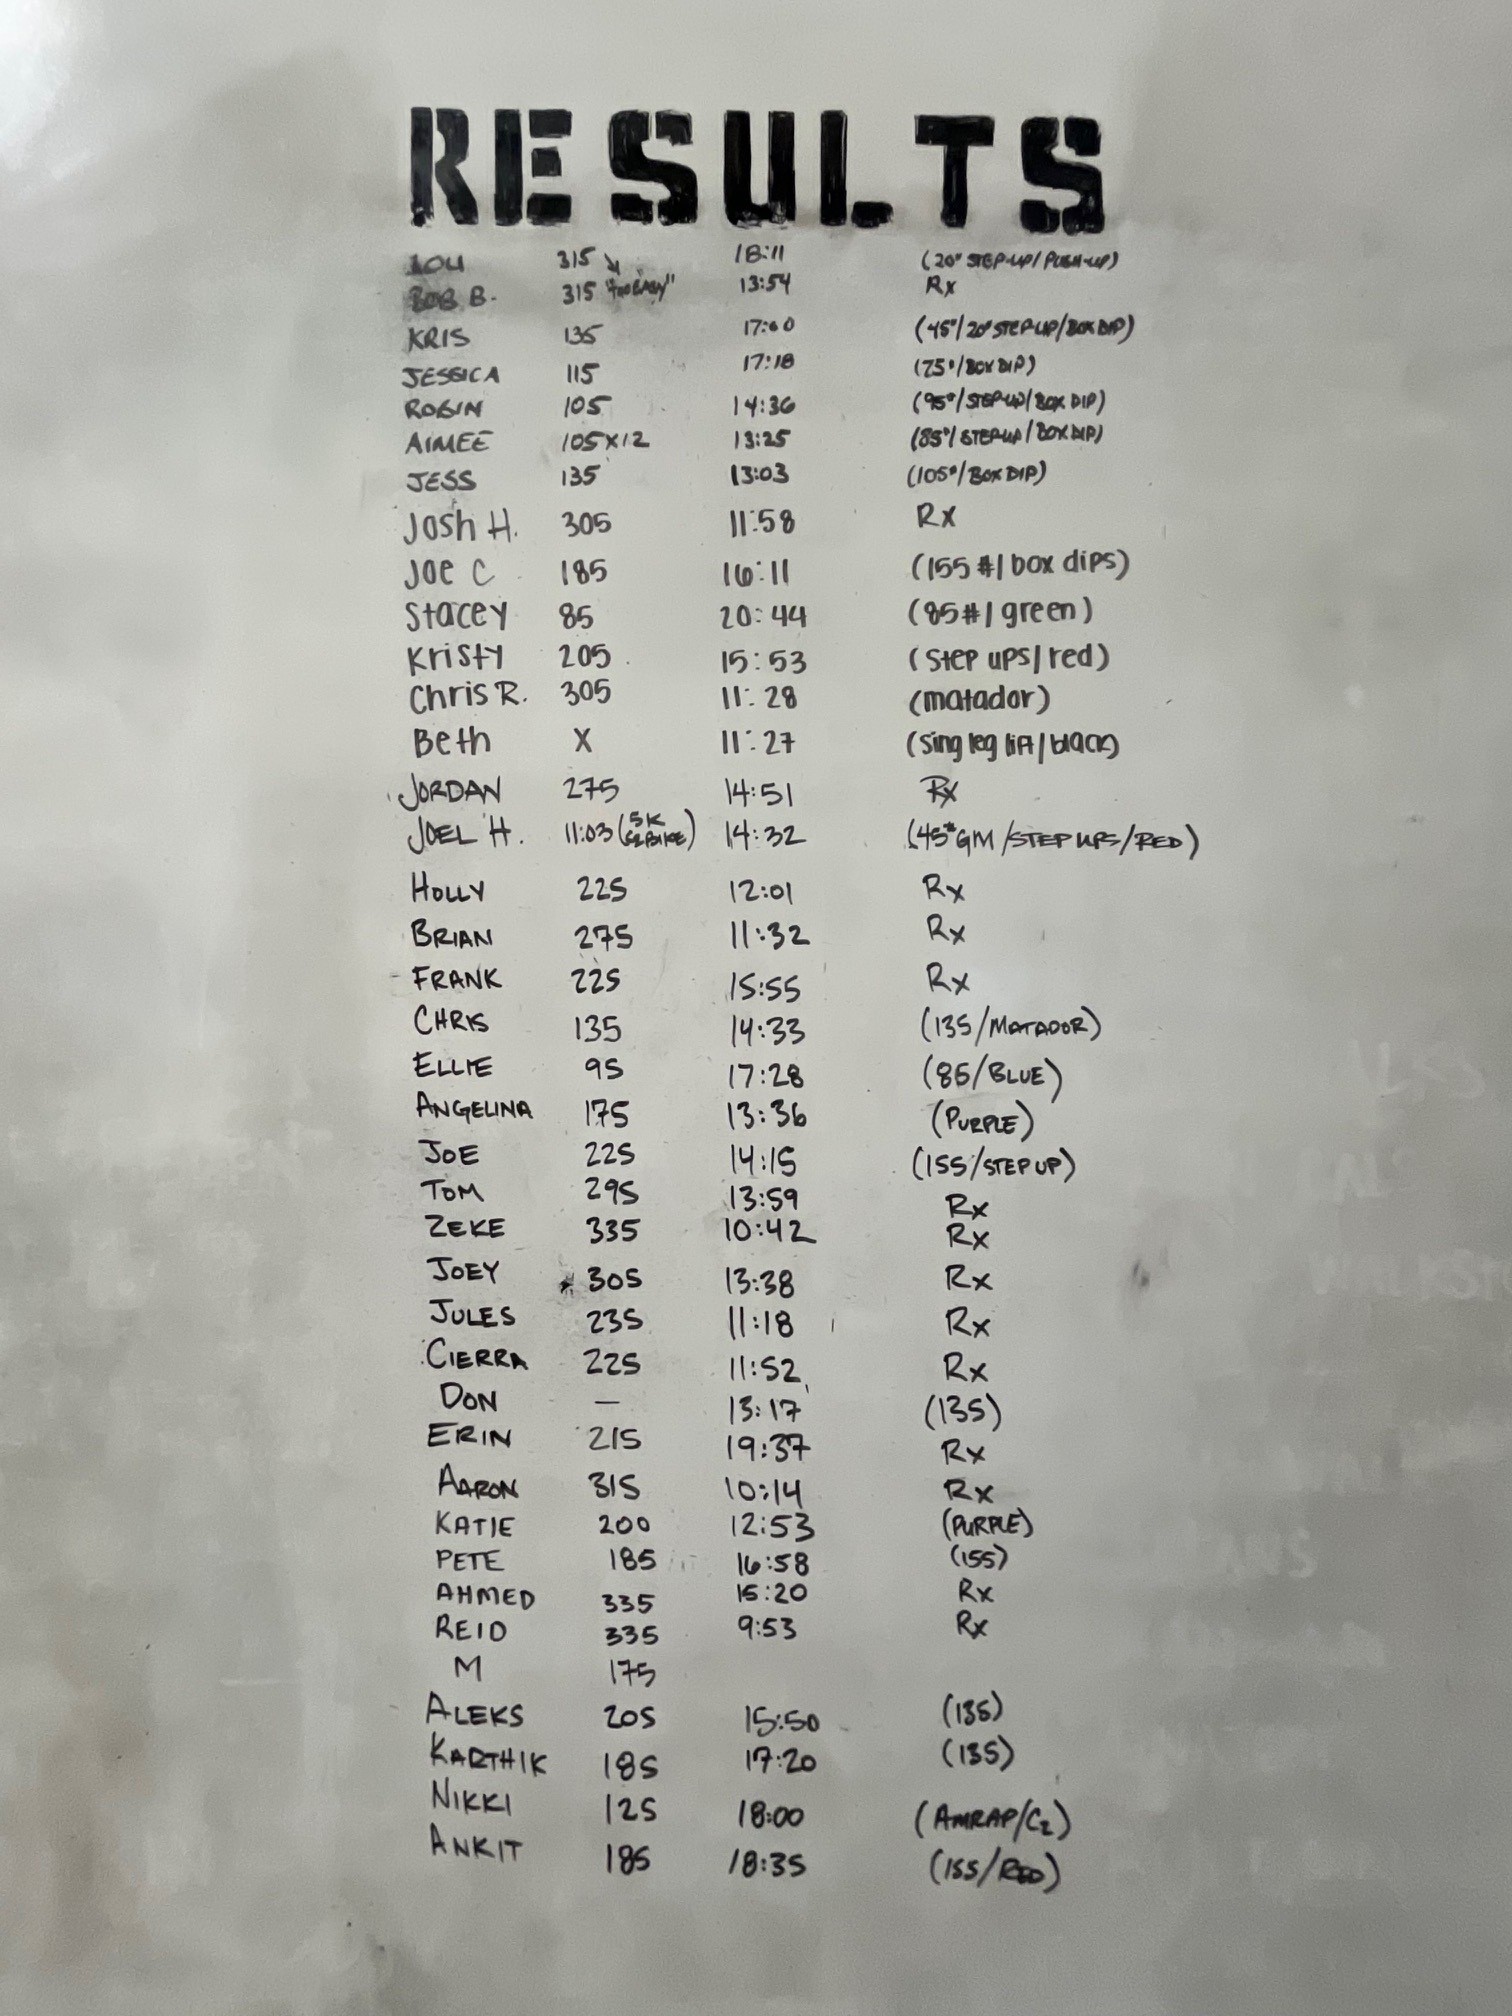 RESULTS
LOU 315 18:11 (20" STEP-UP/PUSH-UP)
BOB B. 315 "TOO EASY" 13:54 Rx
KRIS 135 17:00 (45#/20" STEP UP/BOX DIP)
JESSICA 115 17:18 (75#/BOX DIP)
ROBIN 105 14:36 (95#/STEP-UP/BOX DIP)
AIMEE 105x12 13:25 (85#/STEP-UP/BOX DIP)
JESS 135 13:03 (105#/BOX DIP)
Josh H. 305 11:58 Rx
Joe C 185 16:11 (155#/box dips)
Stacey 85 20:44 (85#/green)
Kristy 205 15:53 (step ups/red)
Chris R. 305 11:28 (matador)
Beth X 11:27 (sing leg lift/black)
JORDAN 275 14:51 Rx
JOEL H. 11:03 (5K C2 BIKE) 14:32 (45# GM/STEP UPS/RED)
HOLLY 225 12:01 Rx
BRIAN 275 11:32 Rx
FRANK 225 15:55 Rx
CHRIS 135 14:33 (135/MATADOR)
ELLIE 95 17:28 (85/BLUE)
ANGELINA 175 13:36 (PURPLE)
JOE 225 14:15 (155/STEP UP)
TOM 295 13:59 Rx
ZEKE 335 10:42 Rx
JOEY * 305 13:38 Rx
JULES 235 11:18 Rx
CIERRA 225 11:52 Rx
DON — 13:17 (135)
ERIN 215 19:37 Rx
AARON 315 10:14 Rx
KATIE 200 12:53 (PURPLE)
PETE 185 16:58 (155)
AHMED 335 15:20 Rx
REID 335 9:53 Rx
M 175
ALEKS 205 15:50 (135)
KARTHIK 185 17:20 (135)
NIKKI 125 18:00 (AMRAP/C2)
ANKIT 185 18:35 (155/RED)